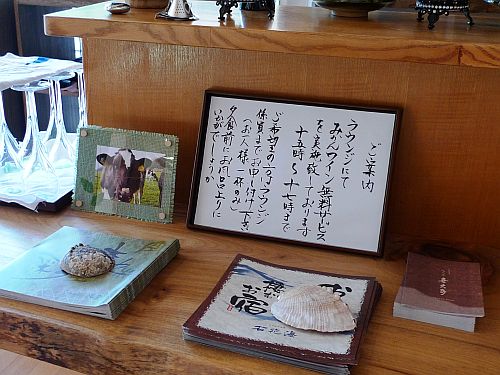 ご案内
ラウンジにて
みかんワイン無料サービス
を実施致しております
十五時～十七時まで
ご希望の方はラウンジ
係員までお申し付け下さい
（お一人様一杯のみ）
夕食前にお風呂上りに
いかがでしょうか
お宿